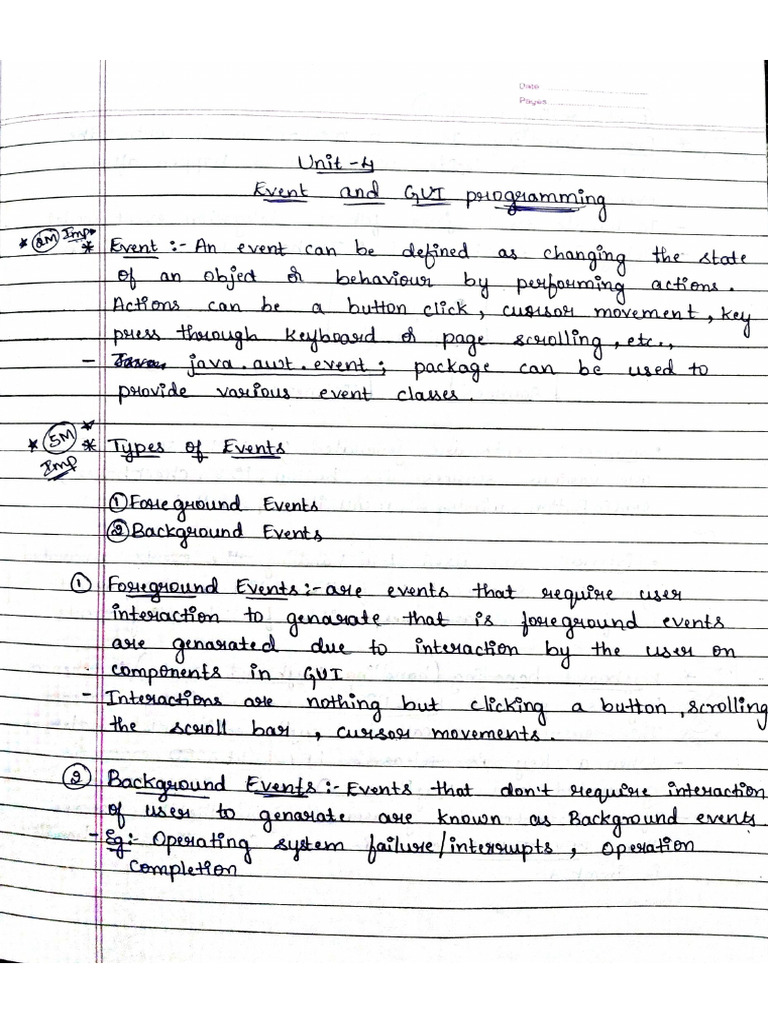 Date
Pages
Unit-4
Event and GUI programming
* 2M Imp * * Event :- An event can be defined as changing the state
of an object or behaviour by performing actions.
Actions can be a button click, cursor movement, key
press through keyboard or page scrolling, etc.,
- java.awt.event; package can be used to
provide various event classes.
* 5M * Imp * Types of Events
① Foreground Events
② Background Events
① Foreground Events:- are events that require user
interaction to genarate that is foreground events
are genarated due to interaction by the user on
components in GUI
- Interactions are nothing but clicking a button, scrolling
the scroll bar, cursor movements.
② Background Events:- Events that don't require interaction
of user to genarate are known as Background events
- Eg:- Operating system failure/interrupts, Operation
completion